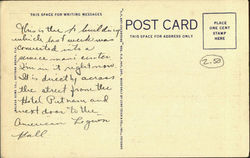 THIS SPACE FOR WRITING MESSAGES
POST CARD
THIS SPACE FOR ADDRESS ONLY
PLACE
ONE CENT
STAMP
HERE
2.50
This is the building
which last week was
converted into a
service mens center
I'm in it right now.
It is directly across
the street from the
Hotel Putnam and
next door to the
American Legion
Hall